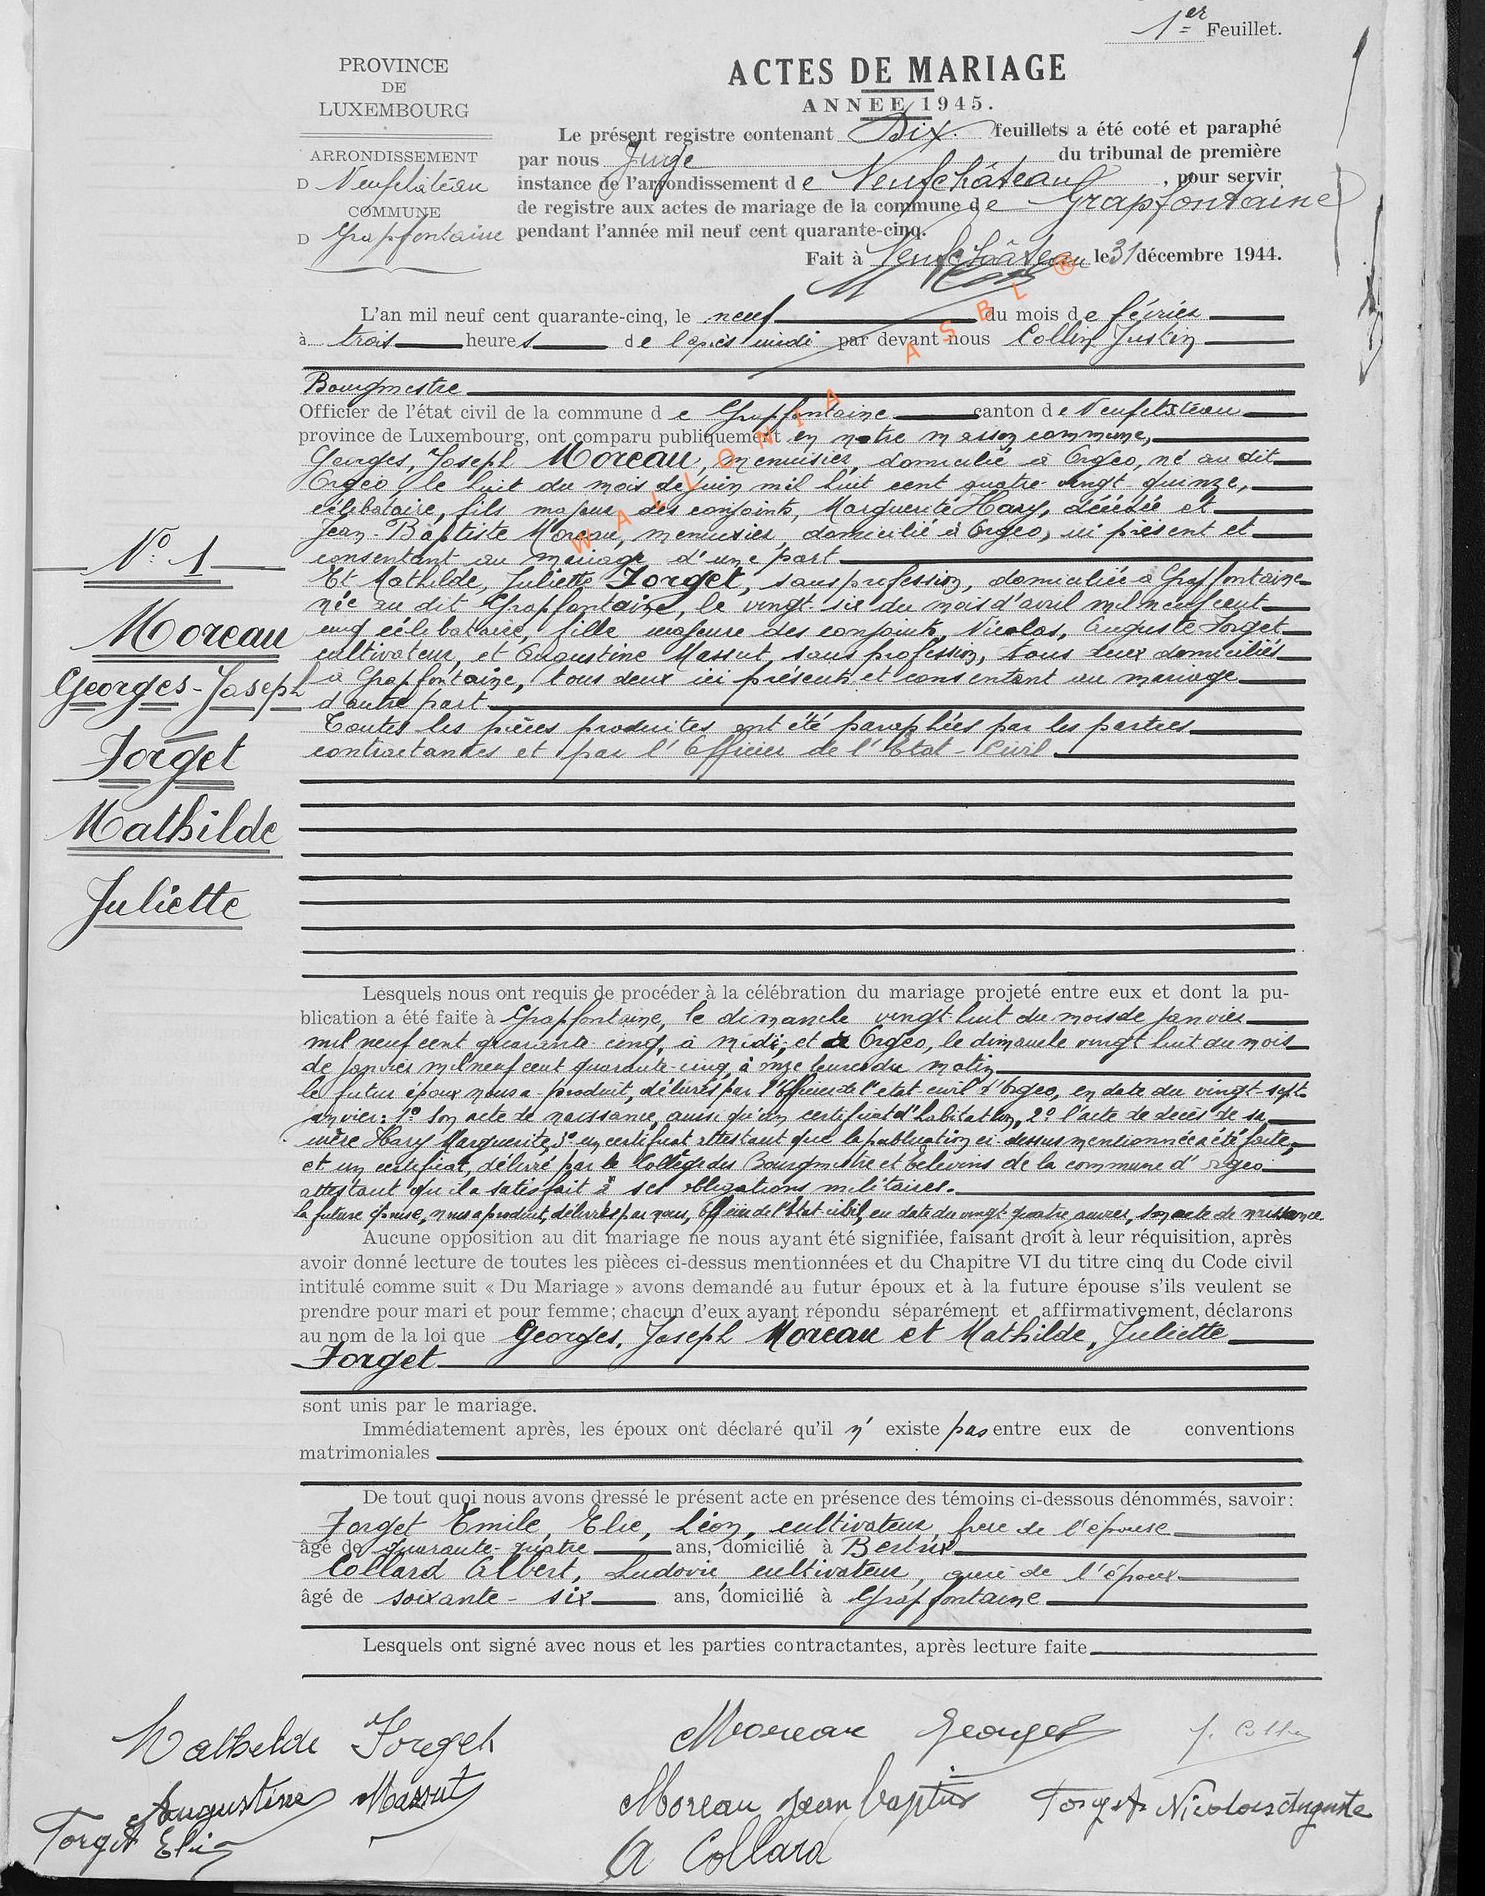 1er Feuillet.
PROVINCE
DE
LUXEMBOURG
ARRONDISSEMENT
D Neufchâteau
COMMUNE
D Grapfontaine
ACTES DE MARIAGE
ANNEE 1945.
Le présent registre contenant Dix feuillets a été coté et paraphé
par nous Juge du tribunal de première
instance de l'arrondissement de Neufchâteau, pour servir
de registre aux actes de mariage de la commune de Grapfontaine
pendant l'année mil neuf cent quarante-cinq.
Fait à Neufchâteau le 31 décembre 1944.
L'an mil neuf cent quarante-cinq, le neuf du mois de février
à trois heures de l'après midi par devant nous Collin Justin
Bourgmestre
Officier de l'état civil de la commune de Grapfontaine canton de Neufchâteau
province de Luxembourg, ont comparu publiquement en notre maison commune,
Georges, Joseph Moreau, menuisier, domicilié à Orgeo, né au dit
Orgeo, le huit du mois de juin mil huit cent quatre-vingt quinze,
célibataire, fils majeur des conjoints, Marguerite Hary, décédée et
Jean-Baptiste Moreau, menuisier, domicilié à Orgeo, ici présent et
consentant au mariage d'une part
Et Mathilde, Juliette Forget, sans profession, domiciliée à Grapfontaine
née au dit Grapfontaine, le vingt six du mois d'avril mil neuf cent
cinq célibataire, fille majeure des conjoints, Nicolas, Auguste Forget
cultivateur, et Augustine Massut, sans profession, tous deux domiciliés
à Grapfontaine, tous deux ici présents et consentant au mariage
d'autre part.
Toutes les pièces produites ont été paraphées par les parties
contractantes et par l'Officier de l'Etat-Civil
N° 1
Moreau
Georges-Joseph
Forget
Mathilde
Juliette
Lesquels nous ont requis de procéder à la célébration du mariage projeté entre eux et dont la pu-
blication a été faite à Grapfontaine, le dimanche vingt-huit du mois de janvier
mil neuf cent quarante cinq, à midi; et à Orgeo, le dimanche vingt huit du mois
de janvier mil neuf cent quarante-cinq, à onze heures du matin
le futur époux nous a produit, délivrés par l'Officier de l'etat civil d'Orgeo, en date du vingt-sept
janvier: 1° Son acte de naissance, ainsi qu'un certificat d'habitation, 2° l'acte de décès de sa
mère Hary Marguerite, 3° un certificat attestant que la publication ci-dessus mentionnée a été faite,
et un certificat, délivré par le Collège des Bourgmestre et Echevins de la commune d'Orgeo
attestant qu'il a satisfait à ses obligations militaires.
la future épouse, nous a produit, délivrés par nous, Officier de l'Etat civil, en date du vingt quatre janvier, son acte de naissance
Aucune opposition au dit mariage ne nous ayant été signifiée, faisant droit à leur réquisition, après
avoir donné lecture de toutes les pièces ci-dessus mentionnées et du Chapitre VI du titre cinq du Code civil
intitulé comme suit « Du Mariage » avons demandé au futur époux et à la future épouse s'ils veulent se
prendre pour mari et pour femme; chacun d'eux ayant répondu séparément et affirmativement, déclarons
au nom de la loi que Georges, Joseph Moreau et Mathilde, Juliette
Forget
sont unis par le mariage.
Immédiatement après, les époux ont déclaré qu'il n'existe pas entre eux de conventions
matrimoniales
De tout quoi nous avons dressé le présent acte en présence des témoins ci-dessous dénommés, savoir:
Forget Emile, Elie, Léon, cultivateur, frère de l'épouse
âgé de quarante-quatre ans, domicilié à Bertrix
Collard Albert, Ludovic cultivateur, ami de l'époux
âgé de soixante-six ans, domicilié à Grapfontaine
Lesquels ont signé avec nous et les parties contractantes, après lecture faite
Mathilde Forget Moreau Georges J. Collin
Augustine Massut Moreau Jean Baptiste Forget Nicolas Auguste
Forget Elie A Collard
WALLONIA ASBL ®